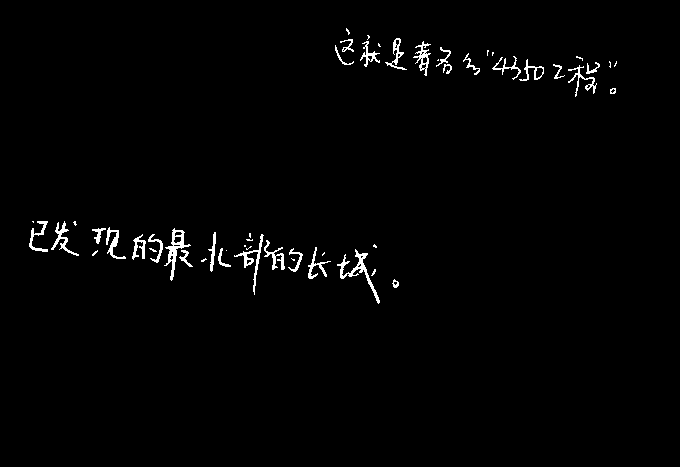 这就是著名的"4350工程"。
已发现的最北部的长城。